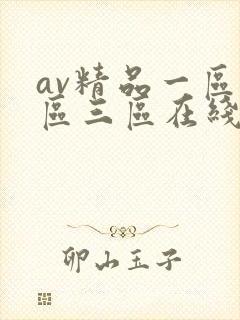 av精品一區
區三區在綫
卵山玉子